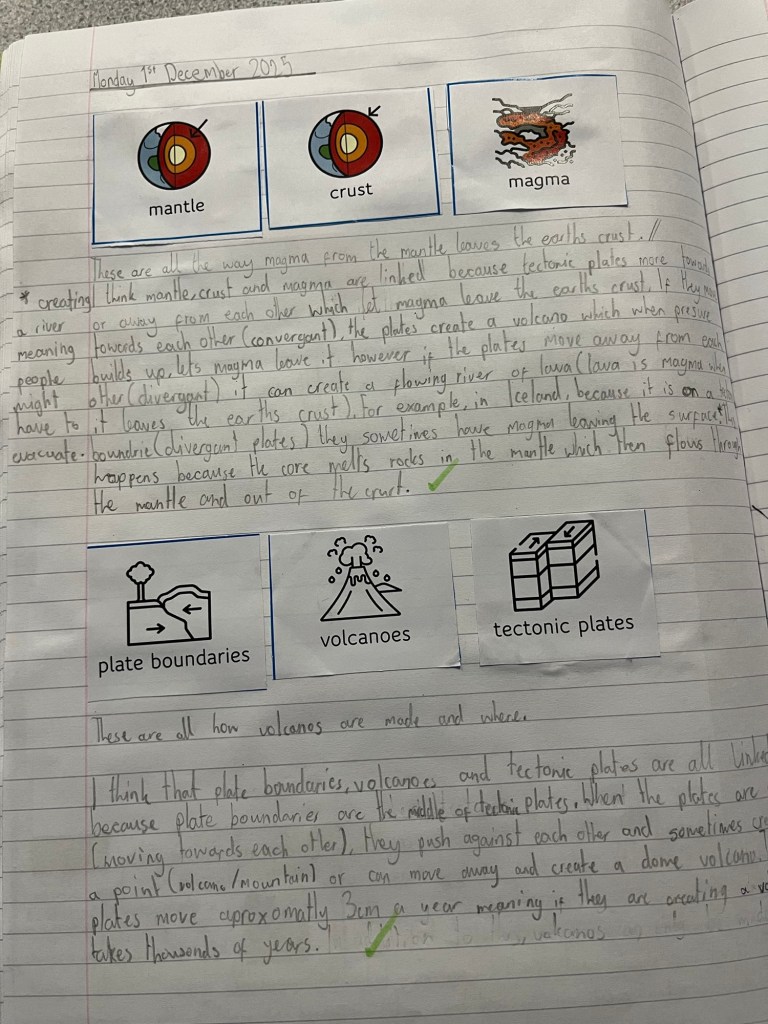 Monday 1st December 2025
mantle
crust
magma
These are all the way magma from the mantle leaves the earths crust. //
think mantle, crust and magma are linked because tectonic plates more
or away from each other which let magma leave the earths crust. If they
towards each other (convergant), the plates create a volcano which when presure
builds up, lets magma leave it however if the plates move away from each
other (divergant) it can create a flowing river of lava (lava is magma when
it leaves the earths crust). For example, in Iceland, because it is on a
boundrie (divergant plates) they sometimes have magma leaving the surface*.
happens because the core melts rocks in the mantle which then flows through
the mantle and out of the crust.
* creating
a river
meaning
people
might
have to
evacuate.
plate boundaries
volcanoes
tectonic plates
These are all how volcanos are made and where.
I think that plate boundaries, volcanoes and tectonic plates are all linked
because plate boundaries are the middle of tectonic plates. When the plates are
(moving towards each other), they push against each other and sometimes
a point (volcano/mountain) or can move away and create a dome volcano.
plates move aproxomatly 3cm a year meaning if they are creating a
takes thousands of years.
volcanos